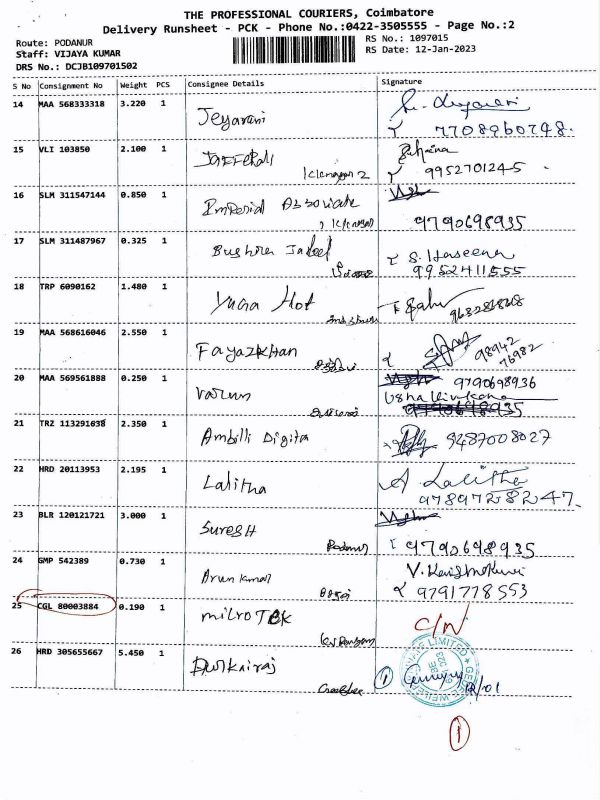 THE PROFESSIONAL COURIERS, Coimbatore
Delivery Runsheet - PCK - Phone No.:0422-3505555 - Page No.:2
Route: PODANUR
Staff: VIJAYA KUMAR
DRS No.: DCJB109701502
RS No.: 1097015
RS Date: 12-Jan-2023
S No Consignment No Weight PCS Consignee Details Signature
14 MAA 568333318 3.220 1 Jeyarani
7708960748.
15 VLI 103850 2.100 1
9952701245.
16 SLM 311547144 0.850 1 Imperial Associate
9790698935
17 SLM 311487967 0.325 1 Bushra Jaleel S. Haseena
9952411555
18 TRP 6090162 1.480 1 Yuga Hot
19 MAA 568616046 2.550 1 Fayazkhan 98942
76982
20 MAA 569561888 0.250 1 Varun 9790698936
21 TRZ 113291638 2.350 1 Ambilli Digita 9487008027
22 HRD 20113953 2.195 1 Lalitha Lalitha
9789728247.
23 BLR 120121721 3.000 1 Suresh Podanur 9790698935
24 GMP 542389 0.730 1 Arun kumar
9791778553
25 CGL 80003884 0.190 1 microtek C/N
26 HRD 305655667 5.450 1 Durkairaj
1
12/01
1